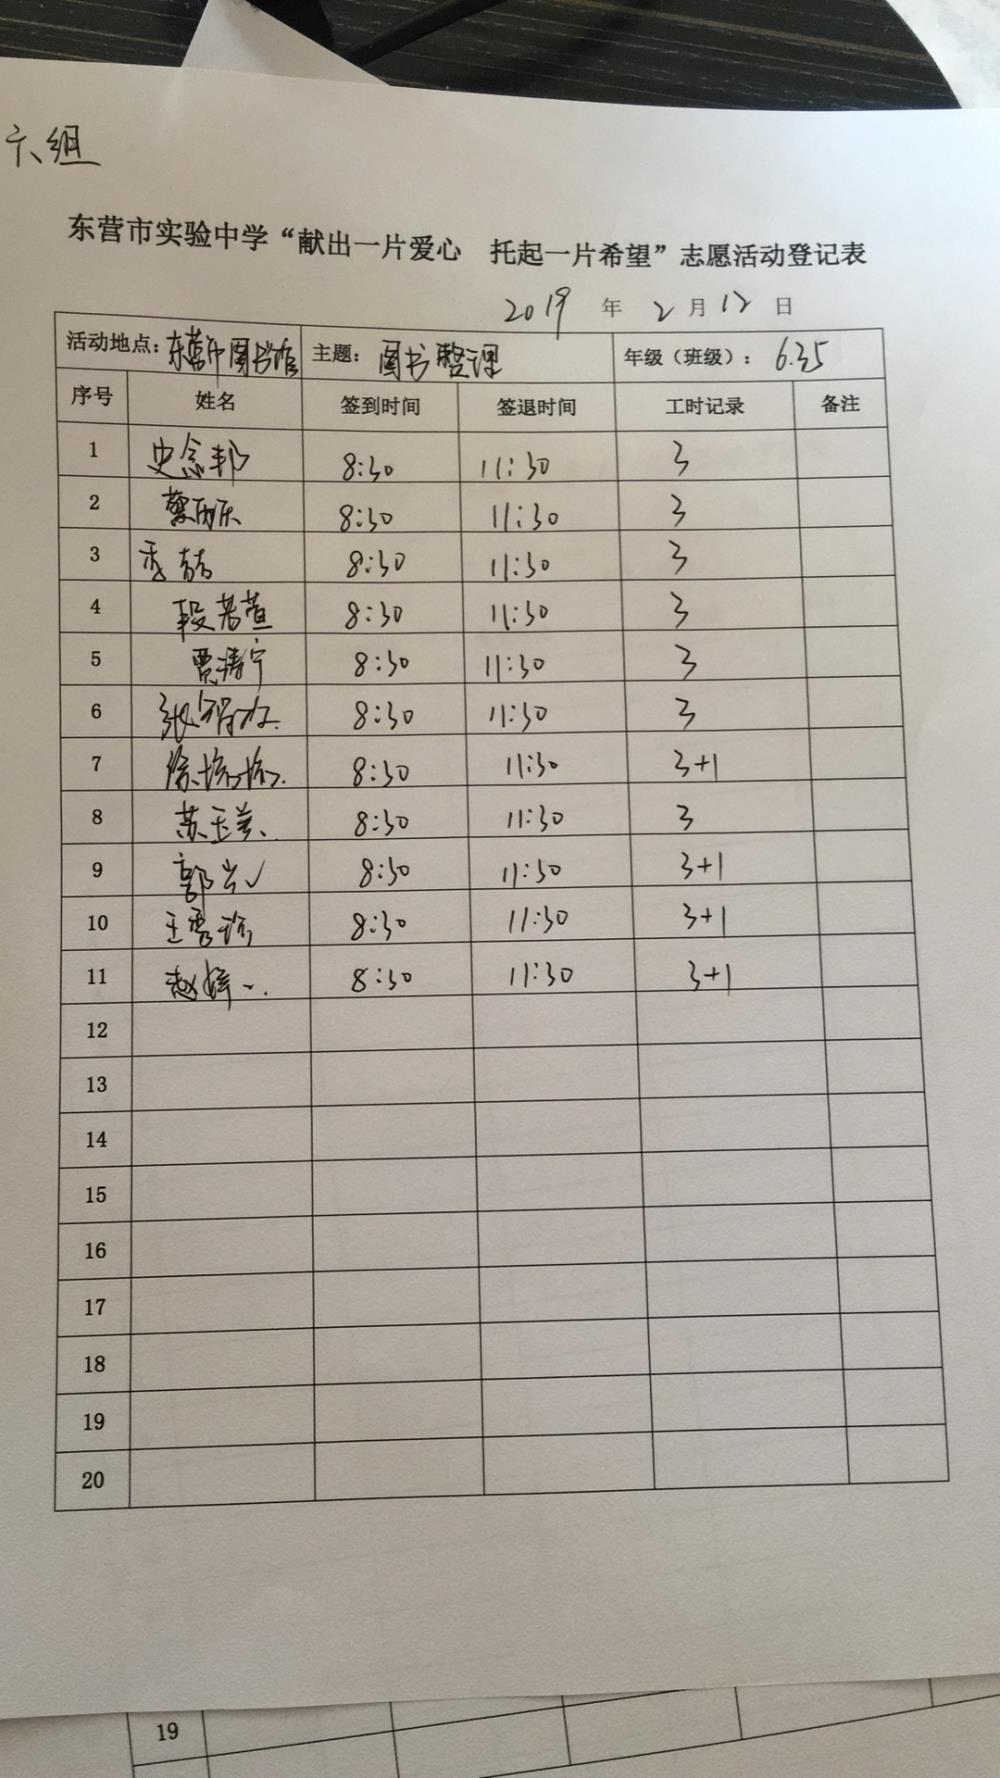 六组
东营市实验中学“献出一片爱心 托起一片希望”志愿活动登记表
2019 年 2 月 12 日
活动地点: 东营市图书馆 主题: 图书整理 年级（班级）: 6.35
序号 姓名 签到时间 签退时间 工时记录 备注
1 史念邦 8:30 11:30 3
2 8:30 11:30 3
3 李喆 8:30 11:30 3
4 段若萱 8:30 11:30 3
5 贾涛宁 8:30 11:30 3
6 8:30 11:30 3
7 8:30 11:30 3+1
8 苏玉美 8:30 11:30 3
9 8:30 11:30 3+1
10 8:30 11:30 3+1
11 8:30 11:30 3+1
12
13
14
15
16
17
18
19
20
19